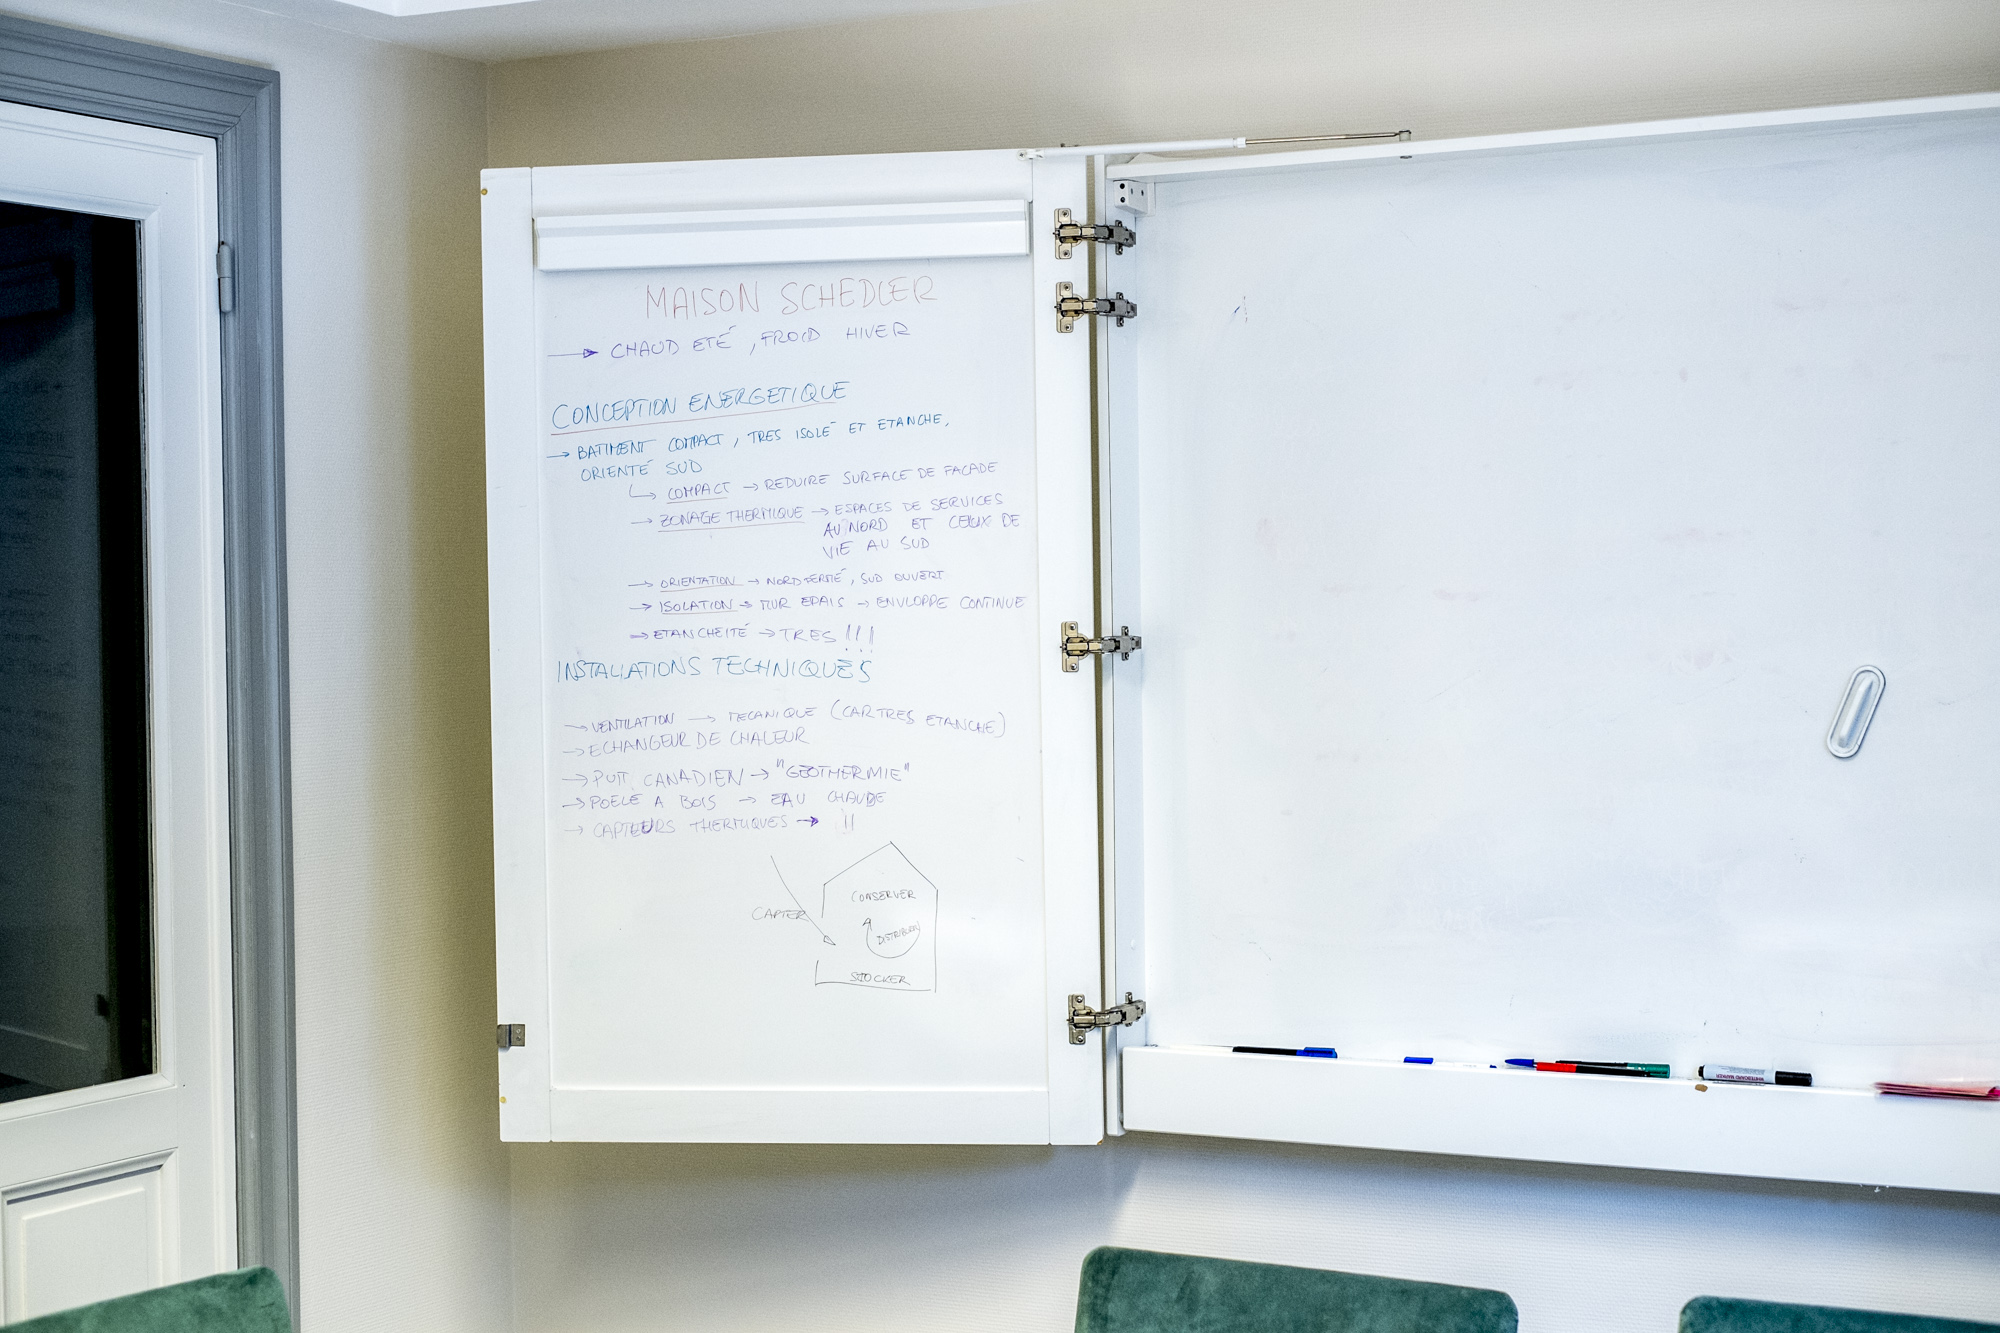 MAISON SCHEDLER
→ CHAUD ETÉ, FROID HIVER
CONCEPTION ENERGETIQUE
→ BATIMENT COMPACT, TRES ISOLÉ ET ETANCHE,
ORIENTÉ SUD
↳ COMPACT → REDUIRE SURFACE DE FACADE
→ ZONAGE THERMIQUE → ESPACES DE SERVICES
AU NORD ET CEUX DE
VIE AU SUD
→ ORIENTATION → NORD FERMÉ, SUD OUVERT
→ ISOLATION → MUR EPAIS → ENVLOPPE CONTINUE
→ ETANCHEITÉ → TRES !!!
INSTALLATIONS TECHNIQUES
→ VENTILATION → MECANIQUE (CAR TRES ETANCHE)
→ ECHANGEUR DE CHALEUR
→ PUIT CANADIEN → "GEOTHERMIE"
→ POELE A BOIS → EAU CHAUDE
→ CAPTEURS THERMIQUES → !!
CONSERVER
CAPTER
STOCKER
WHITEBOARD MARKER